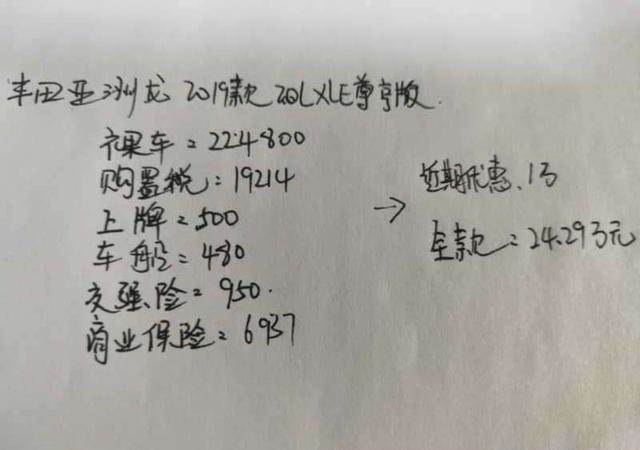 丰田亚洲龙 2019款 2.0L XLE尊享版
裸车：224800
购置税：19214
上牌：500
车船：480
交强险：950.
商业保险：6937
→
近期优惠、1万
全款：24.29万元